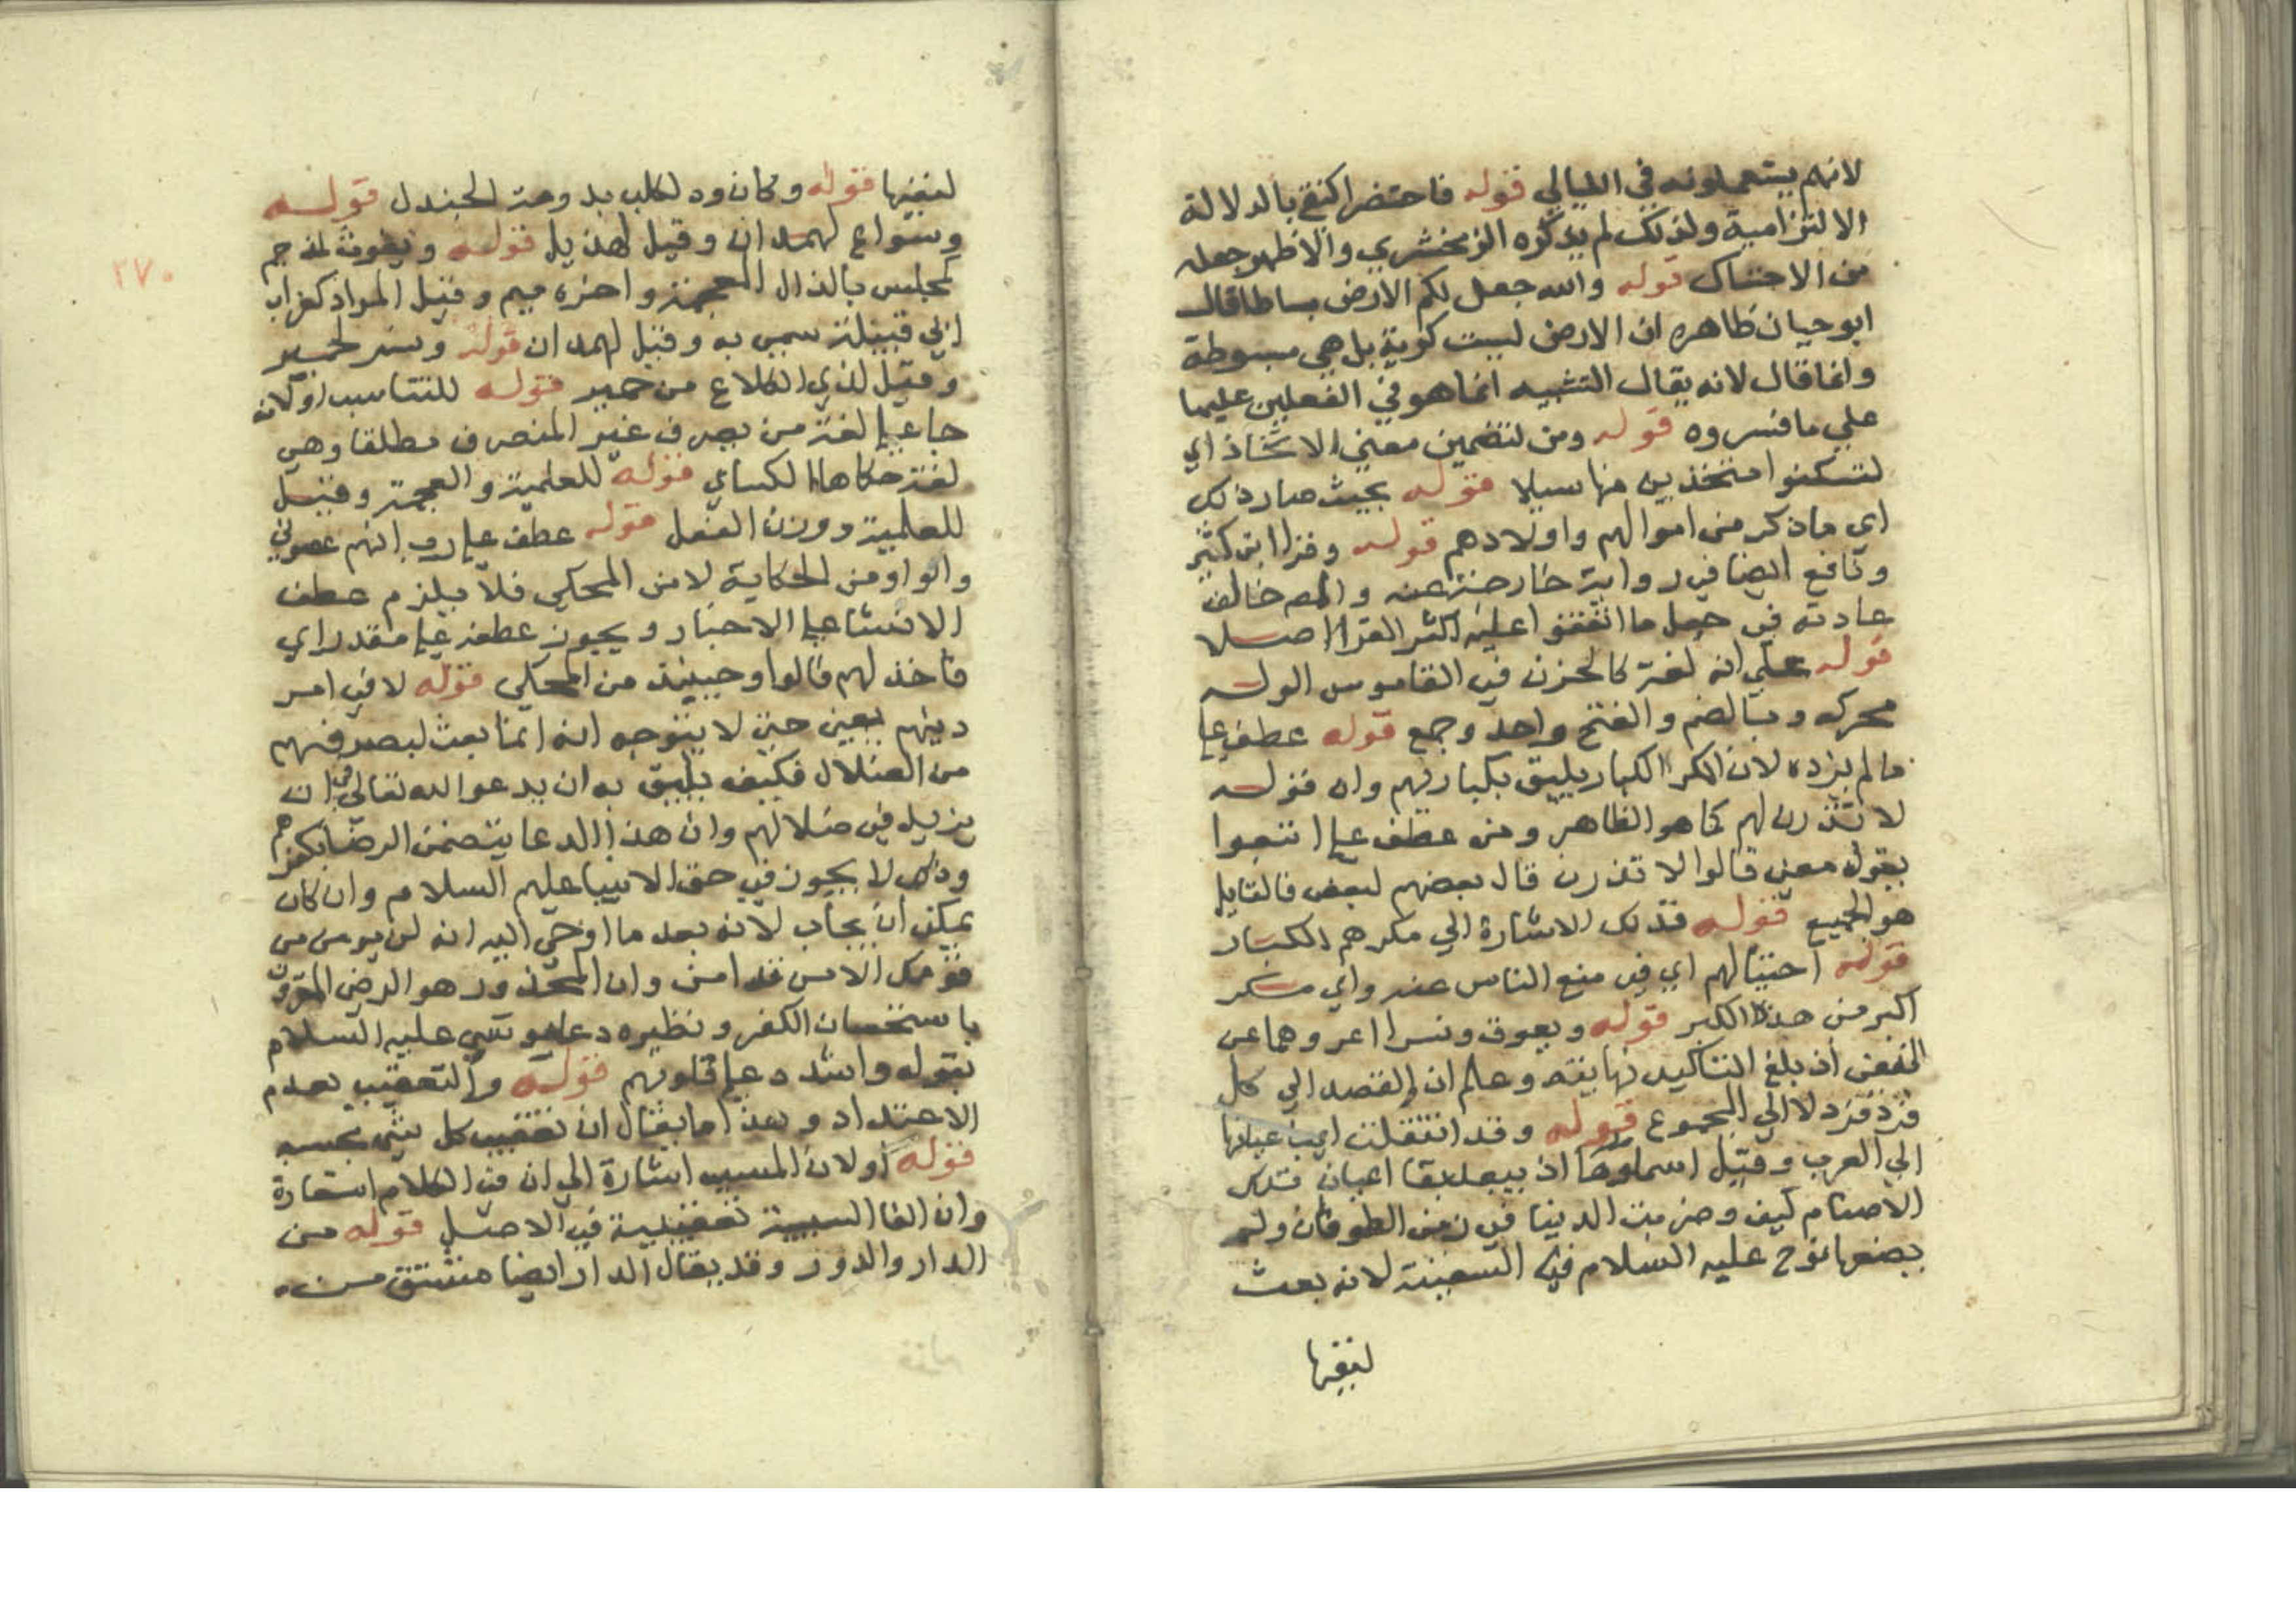 لانهم يستعملونه في الليالي قوله فاختصر اكتفي بالدلالة
الالتزامية ولذلك لم يذكره الزمخشري والاظهر جعله
من الاحتباك قوله والله جعل لكم الارض بساطا قال
ابو حيان ظاهره ان الارض ليست كورية بل هي مبسوطة
وانما قال لانه يقال التشبيه انما هو في الفعلين عليهما
علي ما فسروه قوله ومن لتضمين معني الاتخاذ اي
لتسكنوا متخذين منها سبيلا قوله بحيث صار ذلك
اي ما ذكر من اموالهم واولادهم قوله وقرا ابن كثير
ونافع ايضا في رواية خارجة عنه والمص خالف
عادته في جعل ما اتفقوا عليه اكثر القرا اصلا
قوله علي انه لغة كالحزن في القاموس الولد
محركه وبالضم والفتح واحد وجمع قوله عطف علي
ما لم يزده لان المكر الكبار يليق بكبارهم وان قوله
لا تذرن لهم كما هو الظاهر ومن عطف علي اتبعوا
يقول معني قالوا لا تذرن قال بعضهم لبعض فالقايل
هو الجميع قوله فذلك الاشارة الي مكرهم الكبار
قوله احتيالهم اي في منع الناس عنه واي مكر
اكبر من هذا الكبر قوله ويعوق ونسرا اعر وهما عن
النفي اذ بلغ التاكيد نهايته وعلم ان القصد الي كل
فرد فرد لا الي المجموع قوله وقد انتقلت اي اعيانها
الي العرب وقيل اسماوها اذ يبعد بقا اعيان تلك
الاصنام كيف وخربت الدنيا في زمن الطوفان ولم
يضعها نوح عليه السلام في السفينة لانه بعث
لنفيها
لنفيها قوله وكان ود لكلب بدومة الجندل قوله
وسواع لهمدان وقيل لهذيل قوله ويغوث لمذحج
كمجلس بالذال المعجمة واخره ميم وقيل المراد كغراب
ابي قبيلة سمي به وقيل لهمدان قوله ونسر لحمير
وقيل لذي الكلاع من حمير قوله للتناسب او لانه
جا علي لغة من يصرف غير المنصرف مطلقا وهي
لغة حكاها الكساي قوله للعلمية والعجمة وقيل
للعلمية ووزن الفعل قوله عطف علي رب انهم عصوني
والواو من الحكاية لا من المحكي فلا يلزم عطف
الانشا علي الاخبار ويجوز عطفه علي مقدر اي
فاخذلهم قالوا وحينيذ من المحكي قوله لا في امر
دينهم يعني حتي لا يتوجه انه انما بعث ليصرفهم
من الضلال فكيف يليق به ان يدعو الله تعالي في ان
يزيد في ضلالهم وان هذا الدعا يتضمن الرضا بكفرهم
وذلك لا يجوز في حق الانبيا عليهم السلام وان كان
يمكن ان يجاب لانه بعد ما اوحي اليه انه لن يومن من
قومك الا من قد امن وان المحذور هو الرضي المقرون
باستحسان الكفر ونظيره دعا موسي عليه السلام
بقوله واشدد علي قلوبهم قوله والتعقيب لعدم
الاعتداد وهذا ما يقال ان تعقيب كل شي بحسبه
قوله او لان المسبب اشارة الي ان في الكلام استعارة
وان الفا السببية تعقيبية في الاصل قوله من
الدار والدور وقد يقال الدار ايضا مشتق منه
٢٧٠